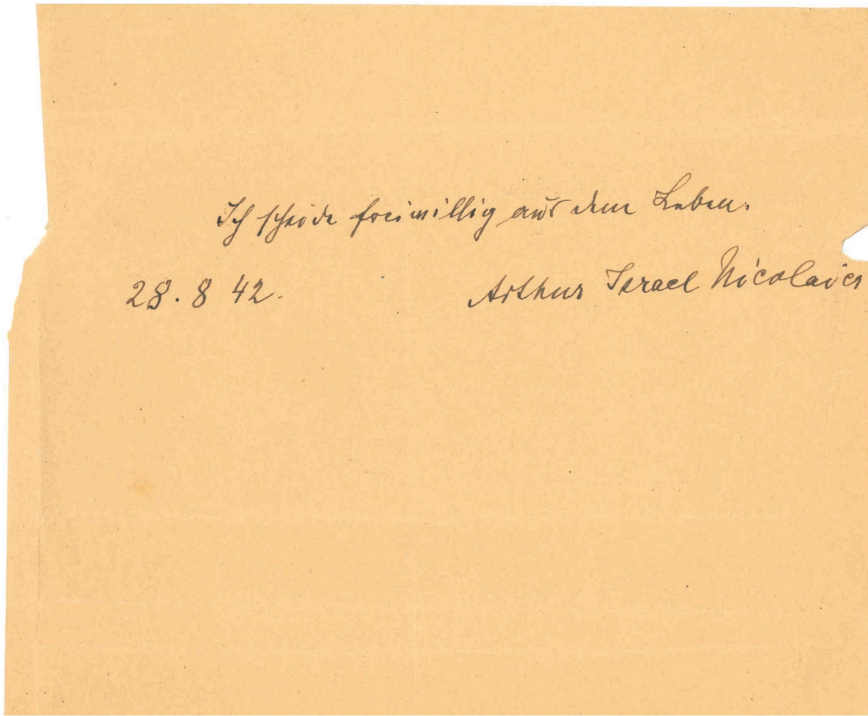 Ich scheide freiwillig aus dem Leben.
28. 8 42. Arthur Israel Nicolaier